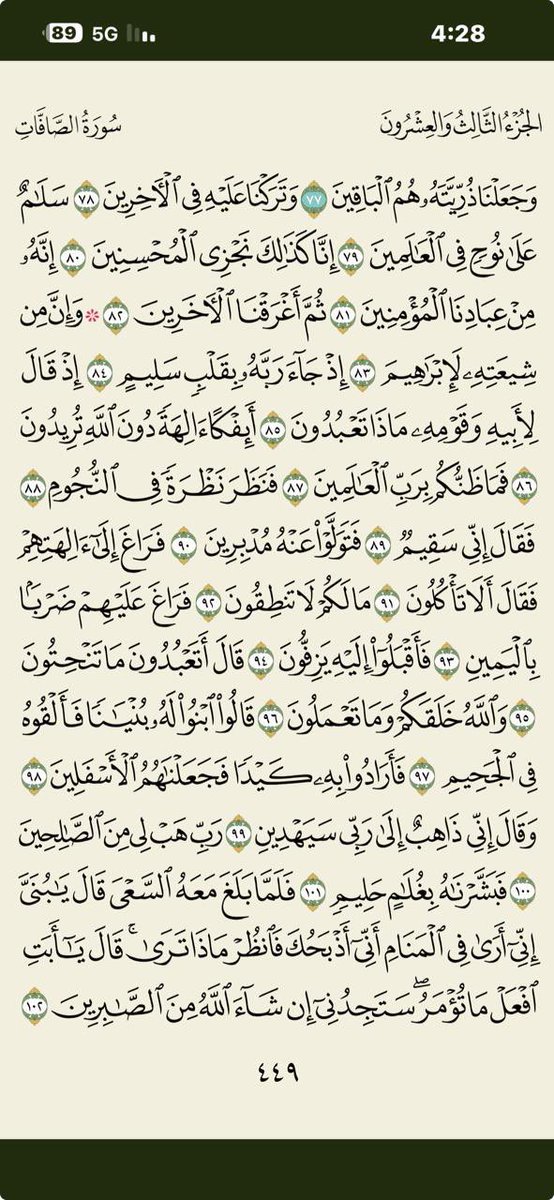 89 5G 4:28
الجُزْءُ الثَّالِثُ وَالعِشْرُونَ سُورَةُ الصَّافَّاتِ
وَجَعَلْنَا ذُرِّيَّتَهُۥ هُمُ ٱلْبَاقِينَ ٧٧ وَتَرَكْنَا عَلَيْهِ فِى ٱلْأَخِرِينَ ٧٨ سَلَٰمٌ
عَلَىٰ نُوحٍ فِى ٱلْعَٰلَمِينَ ٧٩ إِنَّا كَذَٰلِكَ نَجْزِى ٱلْمُحْسِنِينَ ٨٠ إِنَّهُۥ
مِنْ عِبَادِنَا ٱلْمُؤْمِنِينَ ٨١ ثُمَّ أَغْرَقْنَا ٱلْأَخَرِينَ ٨٢ ۞ وَإِنَّ مِن
شِيعَتِهِۦ لَإِبْرَٰهِيمَ ٨٣ إِذْ جَآءَ رَبَّهُۥ بِقَلْبٍ سَلِيمٍ ٨٤ إِذْ قَالَ
لِأَبِيهِ وَقَوْمِهِۦ مَاذَا تَعْبُدُونَ ٨٥ أَئِفْكًا ءَالِهَةً دُونَ ٱللَّهِ تُرِيدُونَ
٨٦ فَمَا ظَنُّكُم بِرَبِّ ٱلْعَٰلَمِينَ ٨٧ فَنَظَرَ نَظْرَةً فِى ٱلنُّجُومِ ٨٨
فَقَالَ إِنِّى سَقِيمٌ ٨٩ فَتَوَلَّوْا۟ عَنْهُ مُدْبِرِينَ ٩٠ فَرَاغَ إِلَىٰٓ ءَالِهَتِهِمْ
فَقَالَ أَلَا تَأْكُلُونَ ٩١ مَا لَكُمْ لَا تَنطِقُونَ ٩٢ فَرَاغَ عَلَيْهِمْ ضَرْبًۢا
بِٱلْيَمِينِ ٩٣ فَأَقْبَلُوٓا۟ إِلَيْهِ يَزِفُّونَ ٩٤ قَالَ أَتَعْبُدُونَ مَا تَنْحِتُونَ
٩٥ وَٱللَّهُ خَلَقَكُمْ وَمَا تَعْمَلُونَ ٩٦ قَالُوا۟ ٱبْنُوا۟ لَهُۥ بُنْيَٰنًا فَأَلْقُوهُ
فِى ٱلْجَحِيمِ ٩٧ فَأَرَادُوا۟ بِهِۦ كَيْدًا فَجَعَلْنَٰهُمُ ٱلْأَسْفَلِينَ ٩٨
وَقَالَ إِنِّى ذَاهِبٌ إِلَىٰ رَبِّى سَيَهْدِينِ ٩٩ رَبِّ هَبْ لِى مِنَ ٱلصَّٰلِحِينَ
١٠٠ فَبَشَّرْنَٰهُ بِغُلَٰمٍ حَلِيمٍ ١٠١ فَلَمَّا بَلَغَ مَعَهُ ٱلسَّعْىَ قَالَ يَٰبُنَىَّ
إِنِّىٓ أَرَىٰ فِى ٱلْمَنَامِ أَنِّىٓ أَذْبَحُكَ فَٱنظُرْ مَاذَا تَرَىٰ ۚ قَالَ يَٰٓأَبَتِ
ٱفْعَلْ مَا تُؤْمَرُ ۖ سَتَجِدُنِىٓ إِن شَآءَ ٱللَّهُ مِنَ ٱلصَّٰبِرِينَ ١٠٢
٤٤٩